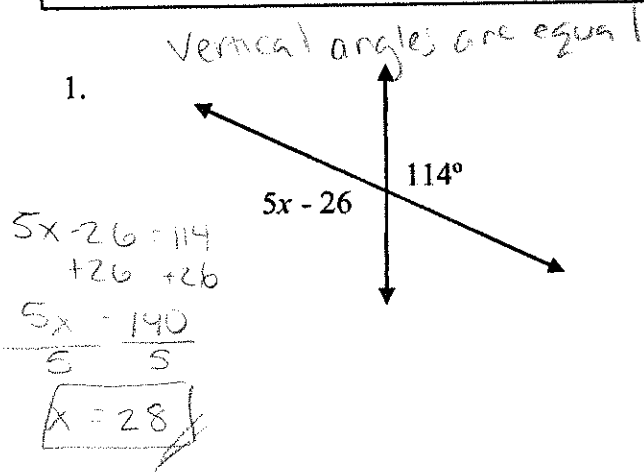 Vertical angles are equal
1.
114°
5x - 26
5x - 26 = 114
+26 +26
5x = 140
5 5
x = 28